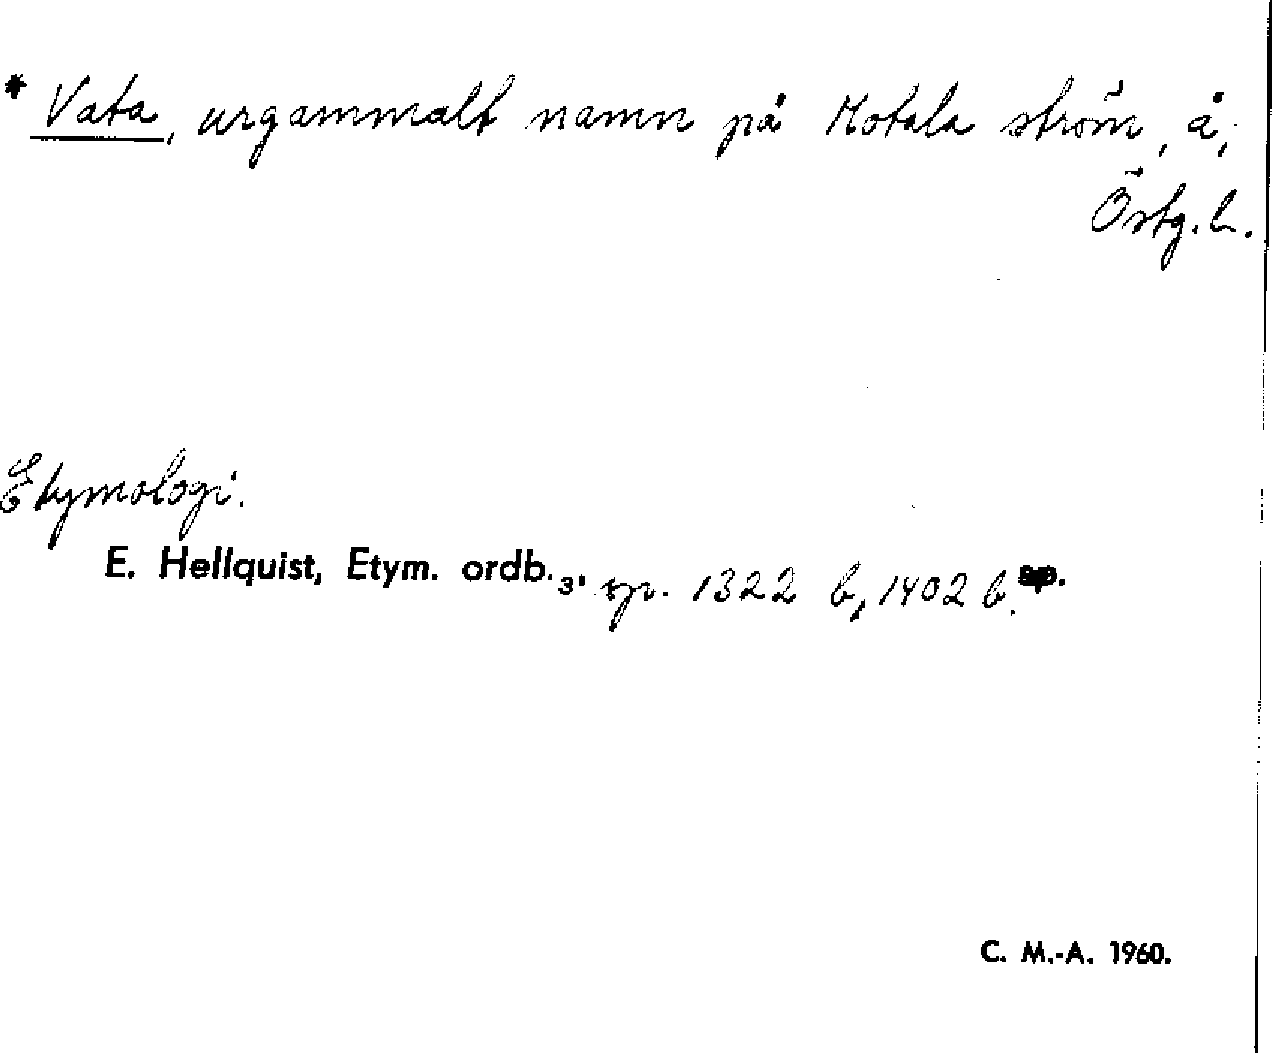 * Vata, urgammalt namn på Motala ström, å,
Östg. l.
Etymologi.
E. Hellquist, Etym. ordb.3. sp. 1322 b, 1402 b.
C. M.-A. 1960.